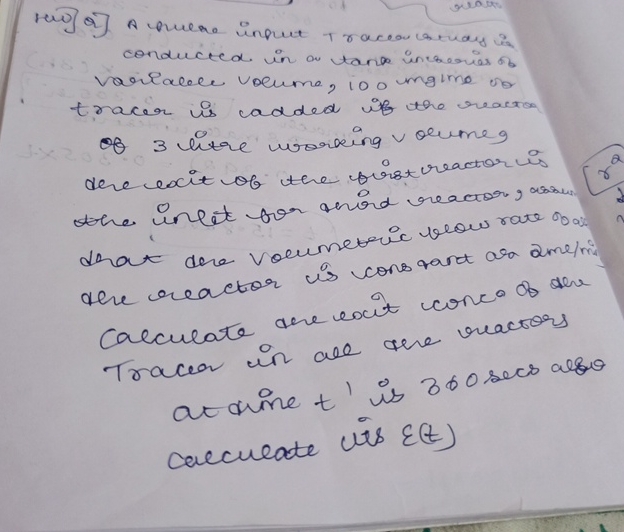 HW] Q] A pulse input Tracer study is
conducted in a tank in series of
variable volume, 100 mg/ml of
tracer is added if the reactor
of 3 litre working volume,
the exit of the first reactor is
the inlet for third reactor, assum
that the volumetric flow rate of all
the reactor is constant as 2ml/mi
Calculate the exit conc of the
Tracer in all the reactors
at time t' is 360 secs also
calculate its E(t)